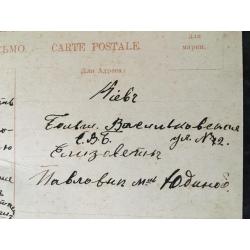 СЬМО. CARTE POSTALE
для марки.
Для Адреса:
Кіевъ
Больш. Васильковская
Е.В.Б. ул. №72.
Елизаветѣ
Павловнѣ Юдиной